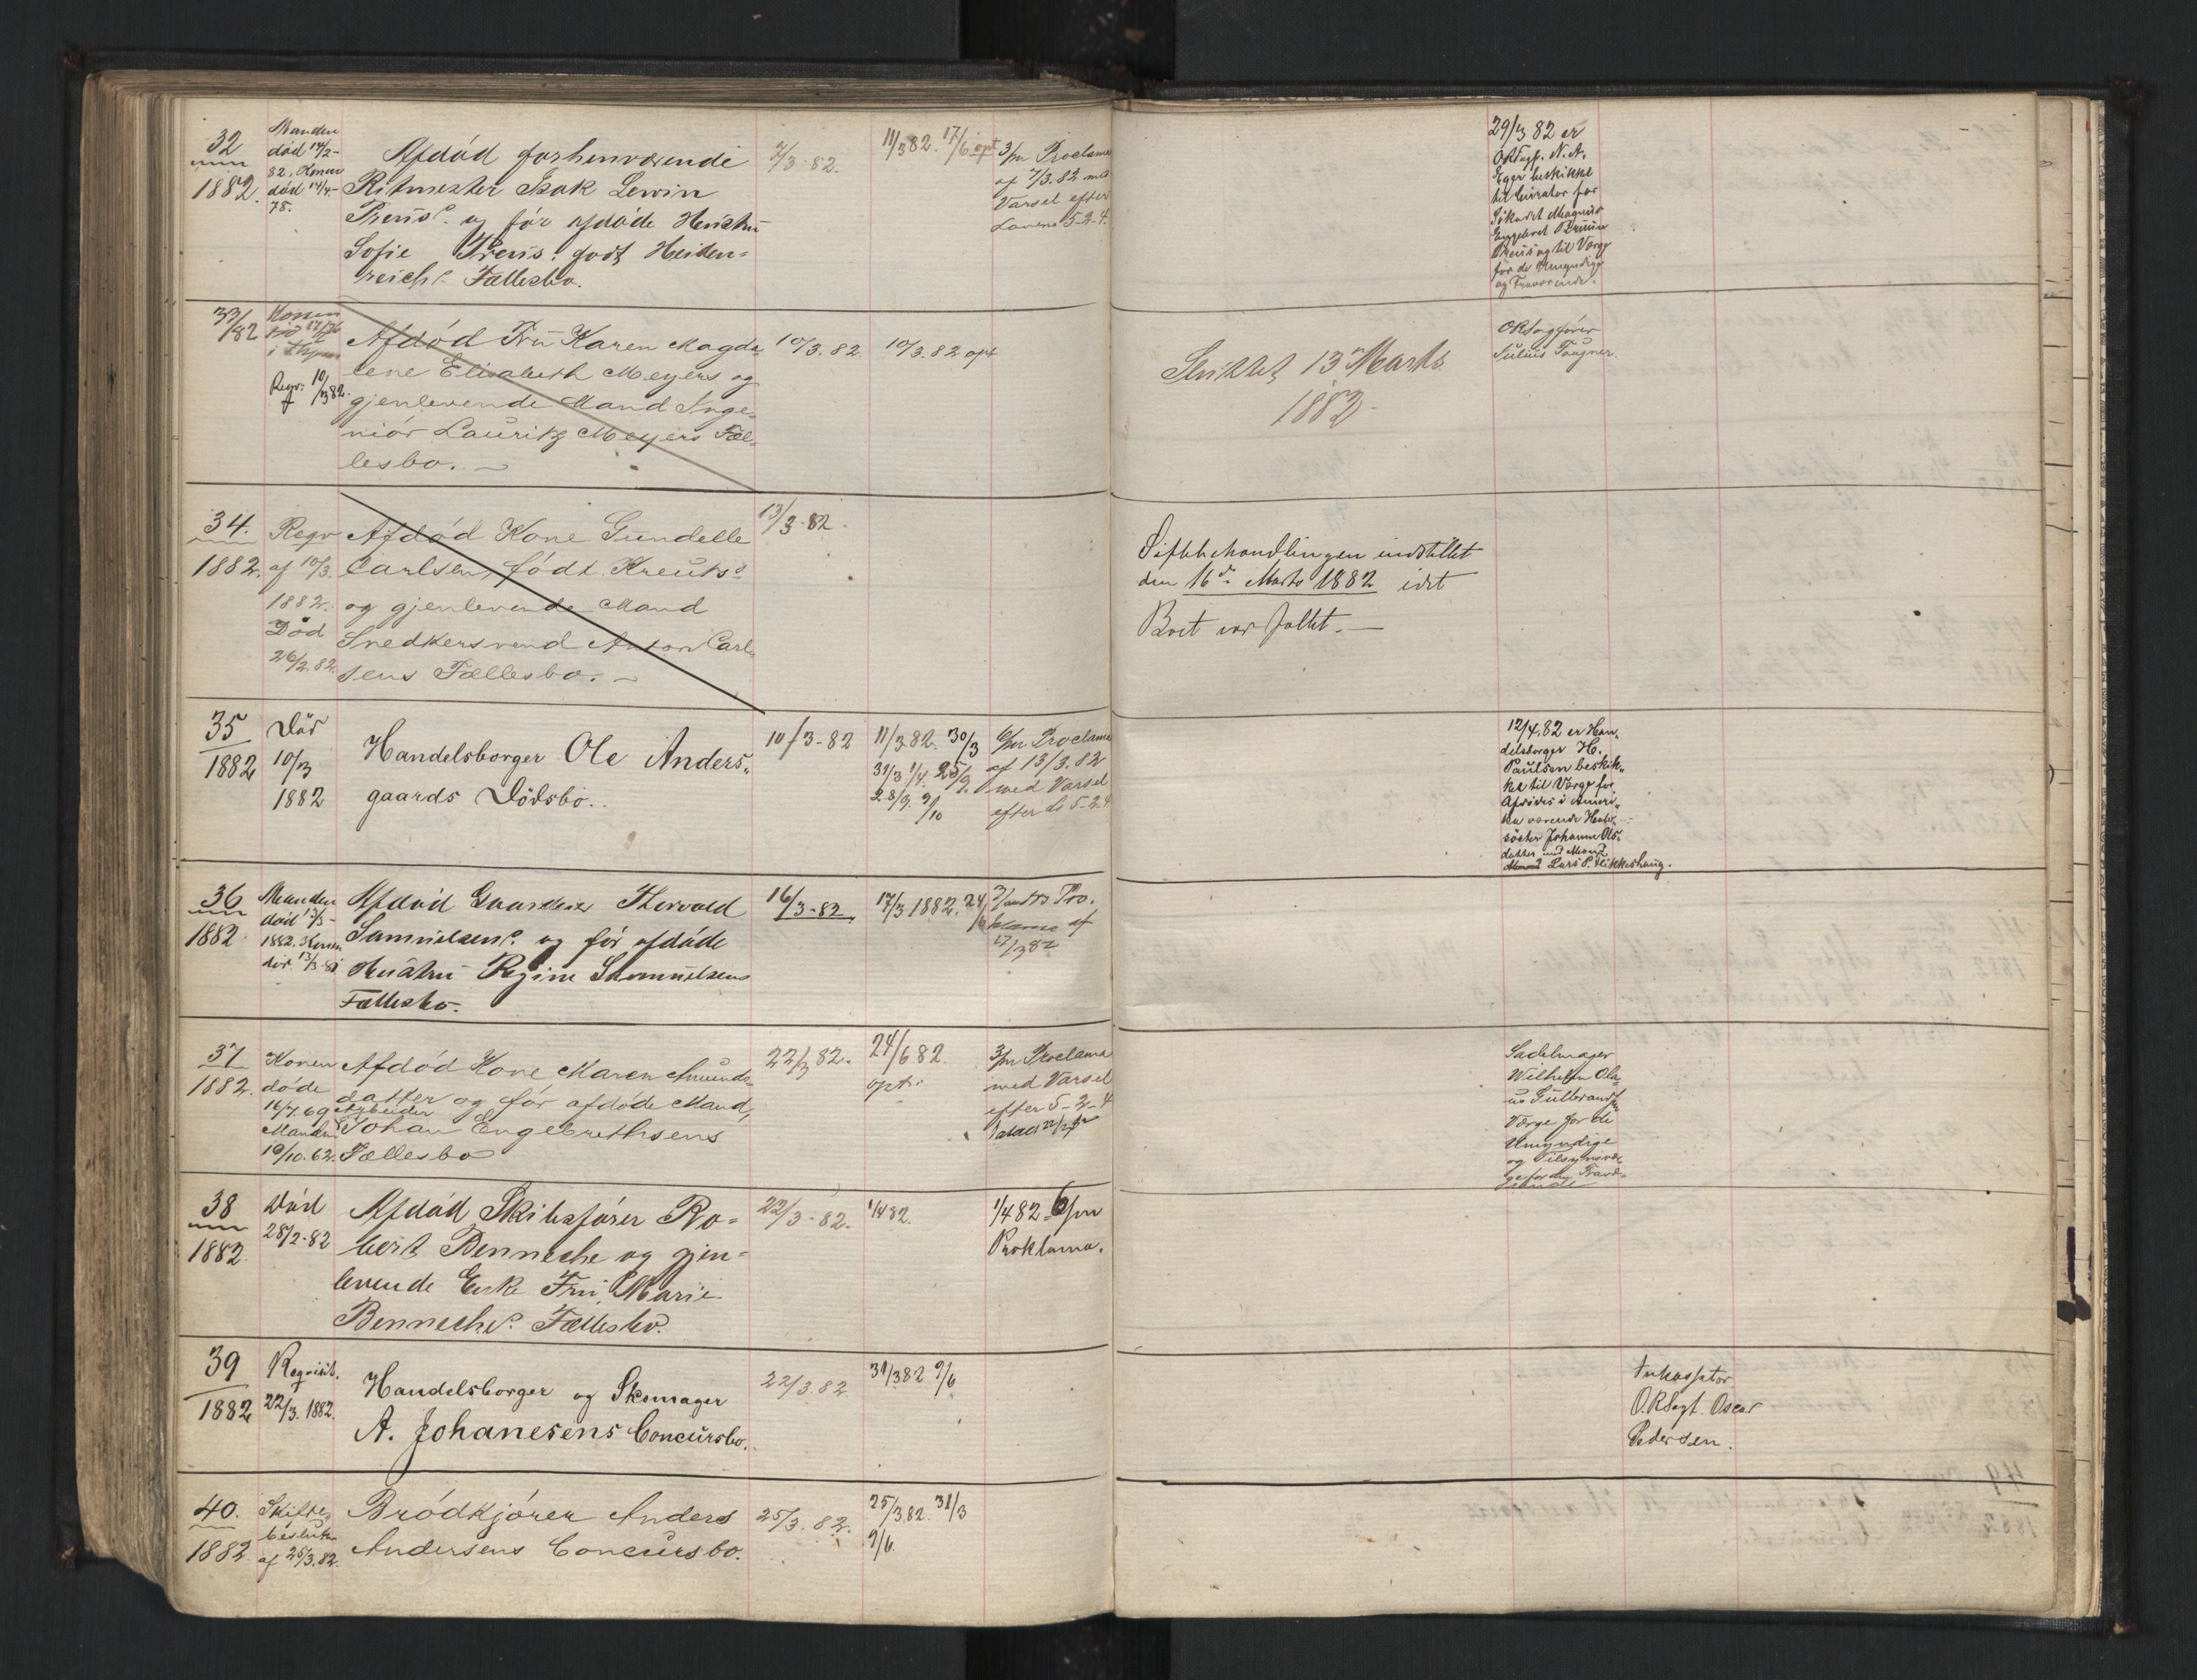 32
1882.
Manden
død 14/2-
82, Konen
død 14/4-
78.
Afdød forhenværende
Ritmester Isak Lewin
og før afdøde Hustru
Sofie født Heiden=
reichs Fællesbo.
7/3-82.
11/3 82. 17/6 opt
3/m Proclama
af 7/3.82 med
Varsel efter
Lovens 5-2-4.
29/3 82 er
ORSagf. N. A.
Eger beskikket
til Curator for
Magnus
Engebret
og til Værge
for de Umyndige
og Fraværende.
33/82
Konen
Reqv: 10/3 82.
Afdød Fru Karen Magda-
lene Elisabeth Meyers og
gjenlevende Mand Inge-
niør Lauritz Meyers Fæl-
lesbo.
10/3.82.
10/3.82 opt
Sluttet 13 Marts
1882.
ORSagfører
Julius Faugner.
34.
1882.
Reqv
af 10/3.
1882.
Død
26/2.82.
Afdød Kone Gundelle
Carlsen, født Kreuts
og gjenlevende Mand
Snedkersvend Anton Carl-
sens Fællesbo.
13/3-82.
Skiftbehandlingen indstillet
den 16de Marts 1882 idet
Boet var fallit.
35
1882
Død
10/3
1882
Handelsborger Ole Anders-
gaards Dödsbo.
10/3-82
11/3.82. 30/3
31/3 1/4. 25/9.
28/9, 9/10
6/m Proclama
af 13/3.82
med Varsel
efter L. 5-2-4
12/4.82 er Han-
delsborger H.
Paulsen beskik-
ket til Værge for
Afdødes i Ameri-
ka værende Halv-
søster Johanne Ols-
datter med Mand
Lars P. Hikkeshaug.
36
1882
Manden
død
1882. Konen
død 13/3-81
Afdød Thorvald
Samuelsens og før afdøde
Hustru Regine Samuelsens
Fællesbo.
16/3-82.
17/3 1882. 24/6
Pro-
klama af
17/3 82
37
1882.
Konen
døde
16/7.69
Manden
10/10.62.
Afdød Kone Maren Amunds-
datter og før afdøde Mand,
Arbeider
Johan Engebrethsens
Fællesbo
22/3 82.
24/6 82.
opt.
3/m Proclama
med Varsel
efter 5-2-4
Sadelmager
Wilhelm Ola-
us Gulbrandsen
Værge for de
Umyndige
og Tilsynsvær-
ge for den Fravæ-
rende
38
1882.
Død
28/2-82
Afdød Skibsfører Ro=
bert Benneche og gjen=
levende Enke Fru Marie
Benneches Fællesbo.
22/3-82.
1/4 82.
1/4 82 6/m
Proklama.
39
1882
Reqvisit.
22/3. 1882.
Handelsborger og Skomager
A. Johanesens Concursbo.
22/3.82.
31/3 82 9/6
Inkassator
O.RSagf. Oscar
Pedersen.
40.
1882
Skifte-
beslutn.
af 25/3.82.
Brödkjörer Anders
Andersens Concursbo.
25/3.82.
25/3.82. 31/3
9/6.